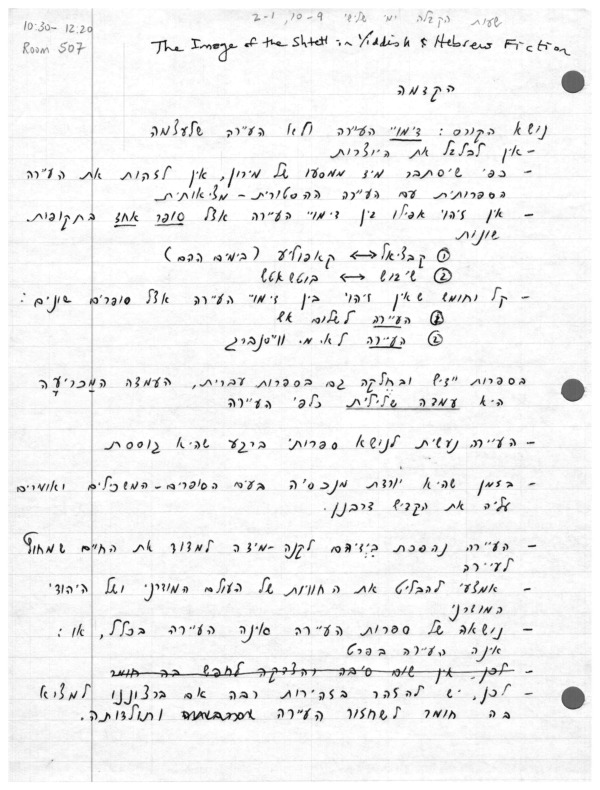 שעות הקבלה ימי שלישי 9-10, 1-2
10:30-12:20
Room 507
The Image of the Shtetl in Yiddish & Hebrew Fiction
הקדמה
נושא הקורס: דימוי העיירה ולא העיירה שלעצמה
- אין לבלבל את היוצרות
- כפי שיסתבר מיד ממסעו של מירון, אין לזהות את העיירה
הספרותית עם העיירה ההסטורית-מציאותית
- אין זיהוי אפילו בין דימויי העיירה אצל סופר אחד בתקופות
שונות
① קבציאל ↔ קאפוליע (בימים ההם)
② שיבוש ↔ בוטשאטש
- קל וחומש שאין זיהוי בין דימויי העיירה אצל סופרים שונים:
① העיירה לשלום אש
② העיירה לא. מ. ווײסנברג
בספרות יידיש ובחלקה גם בספרות עברית, העמדה המכריעה
היא עמדה שלילית כלפי העיירה
- העיירה נעשית לנושא ספרותי ברגע שהיא גוססת
- בזמן שהיא יורדת מנכסיה באים הסופרים-המשכילים ואומרים
עליה את הקדיש דרבנן.
- העיירה נהפכת בידיהם לקנה-מידה למדוד את החיים שמחוץ
לעיירה
- אמצעי להבליט את החוויות של העולם המודרני ושל היהודי
המודרני
- נושאה של ספרות העיירה אינה העיירה בכלל, או:
אינה העיירה בפרט
- לכן, אין שום סיבה והצדקה לחפש בה חומר
- לכן, יש להזהר בזהירות רבה אם ברצוננו למצוא
בה חומר לשחזור העיירה ותולדותה.